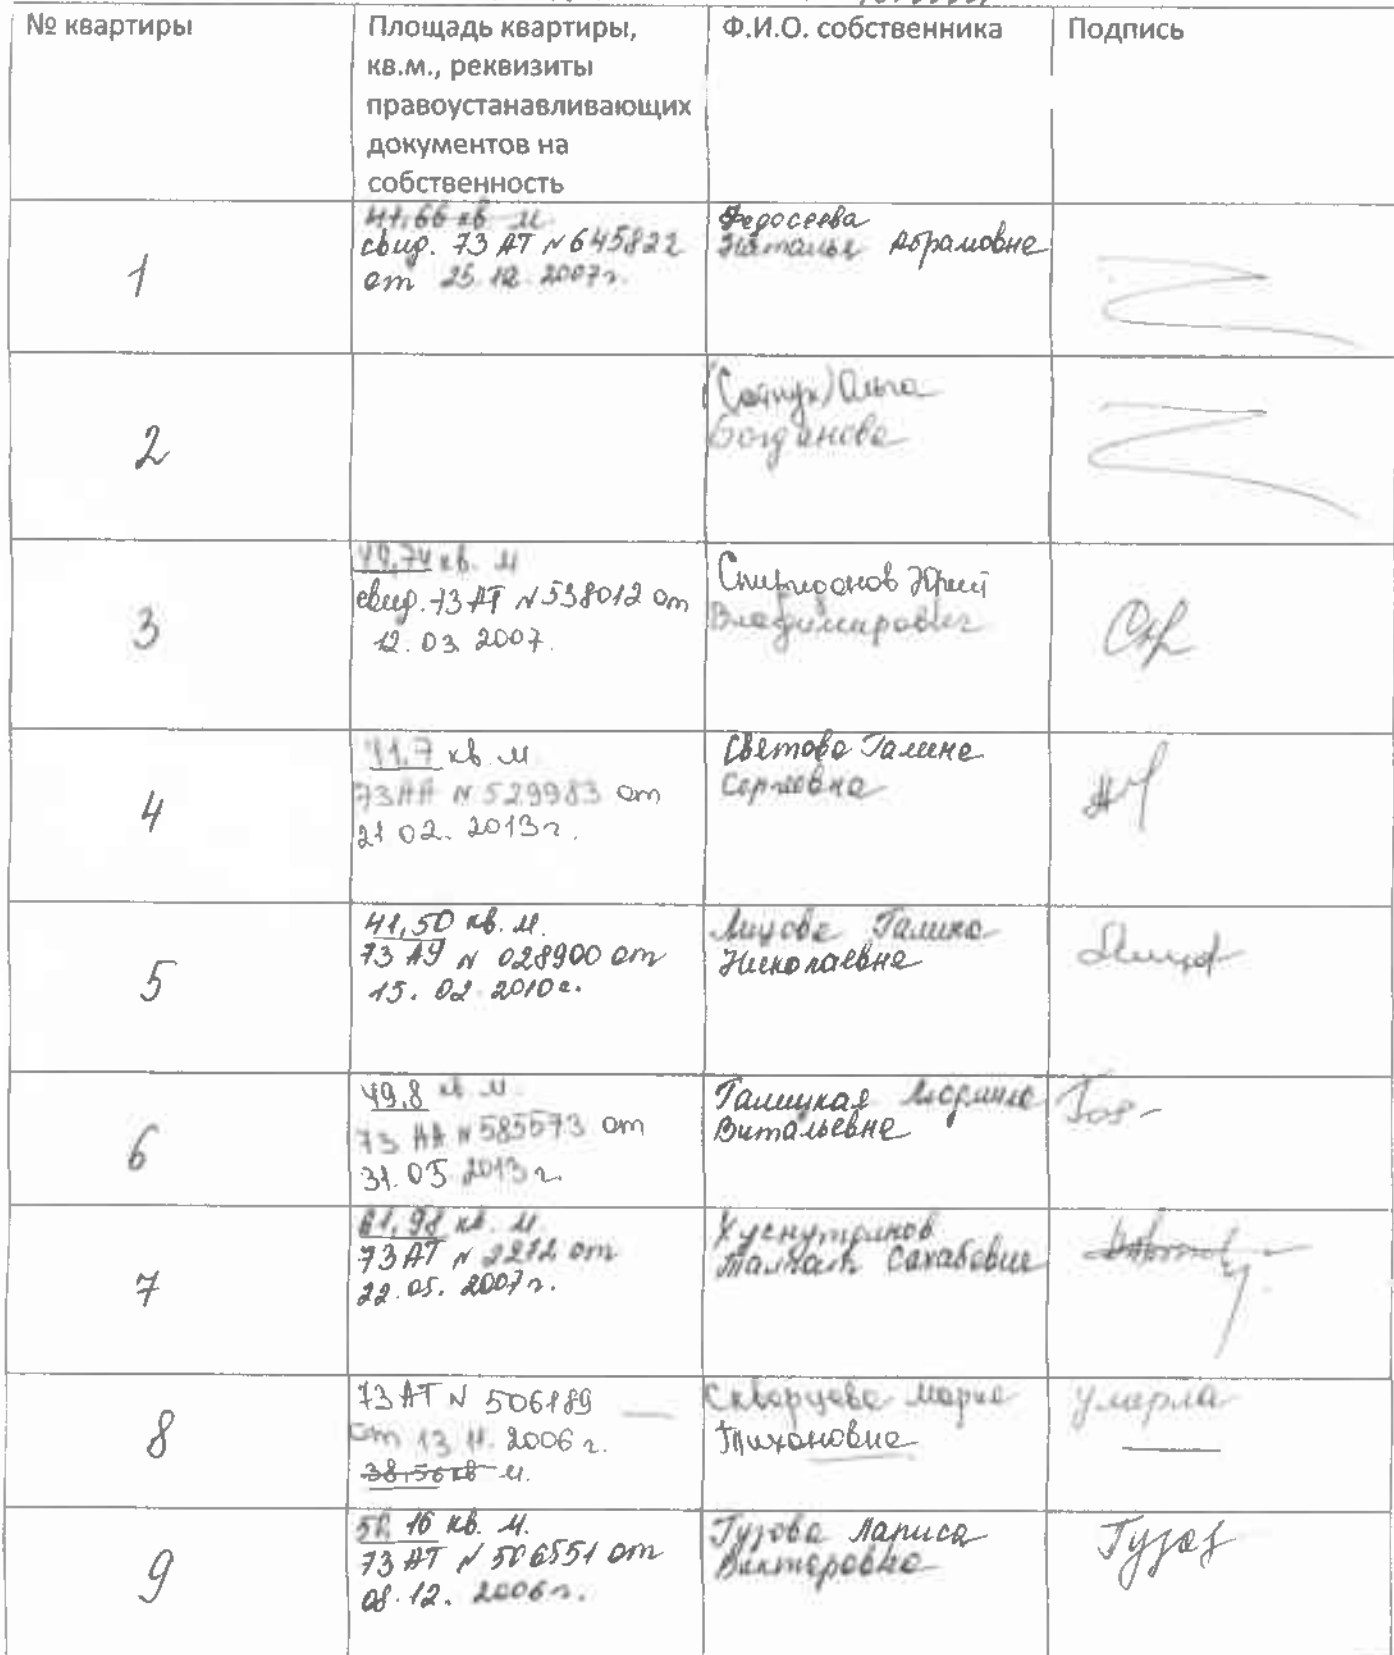 № квартиры
Площадь квартиры,
кв.м., реквизиты
правоустанавливающих
документов на
собственность
Ф.И.О. собственника
Подпись
1
41,66 кв м
свид. 73 АТ № 645822
от 25.12.2007г.
Федосеева
Наталья Абрамовна
2
Ольга
Богданова
3
49,74 кв. м
свид. 73 АТ № 538012 от
12.03.2007.
Спиридонов Юрий
Владимирович
4
41,7 кв м
73 АА № 529983 от
21 02. 2013г.
Светова Галина
Сергеевна
5
41,50 кв. м.
73 АУ № 028900 от
15. 02. 2010г.
Лицова Галина
Николаевна
6
49,8 кв м
73 АА № 585573 от
31.05.2013 г.
Галицкая Людмила
Витальевна
7
61,98 кв. м
73 АТ № 2212 от
22.05.2007г.
Хуснутдинов
Талгат Сахабович
8
73 АТ № 506189
от 13 11. 2006 г.
38,56 кв м.
Скворцова Мария
Тихоновна
умерла
9
16 кв. м.
73 АТ № 506551 от
08.12. 2006г.
Гузова Лариса
Викторовна